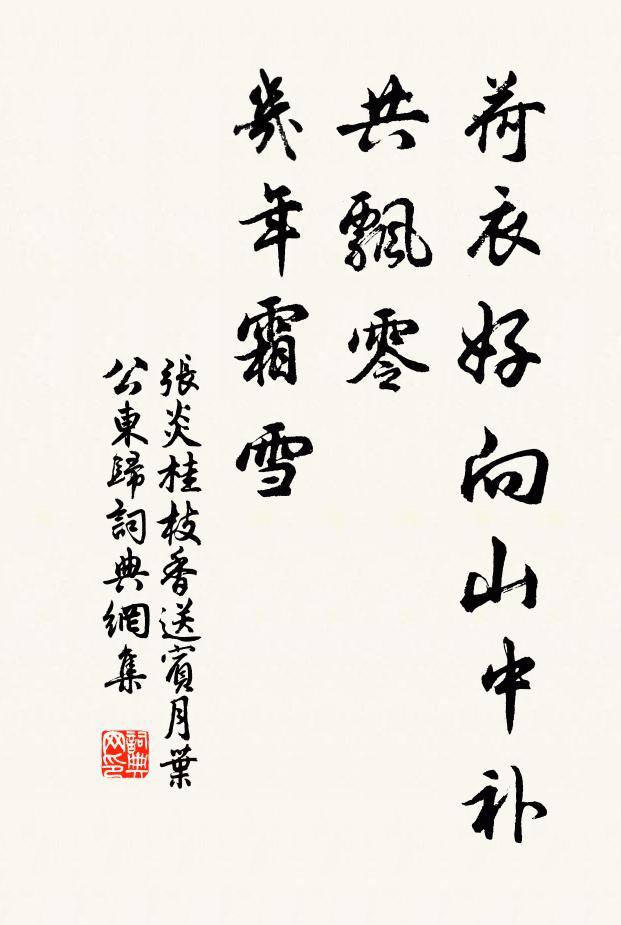 荷衣好向山中补
共飄零
幾年霜雪
張炎桂枝香送賓月葉
公東歸詞典網集
詞典网印